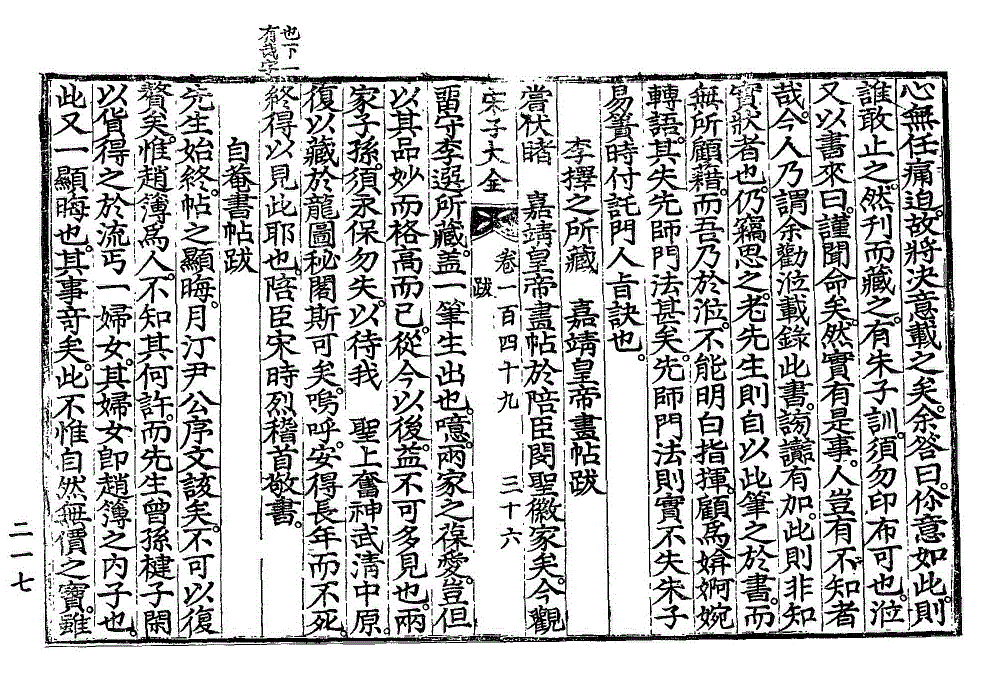 也下一
有哉字
心無任痛迫。故將決意載之矣。余答曰。你意如此。則
誰敢止之。然刊而藏之。有朱子訓。須勿印布可也。㳣
又以書來曰。謹聞命矣。然實有是事。人豈有不知者
哉。今人乃謂余勸㳣載錄此書。謗讟有加。此則非知
實狀者也。仍竊思之。老先生則自以此筆之於書。而
無所顧藉。而吾乃於㳣。不能明白指揮。顧爲媕婀婉
轉語。其失先師門法甚矣。先師門法則實不失朱子
易簀時付託門人旨訣也。
李擇之所藏 嘉靖皇帝畫帖跋
嘗伏睹 嘉靖皇帝畫帖於陪臣閔聖徽家矣。今觀
宋子大全 卷一百四十九 跋 三十六
畱守李選所藏。蓋一筆生出也。噫。兩家之葆愛。豈但
以其品妙而格高而已。從今以後。益不可多見也。兩
家子孫。須永保勿失。以待我 聖上奮神武淸中原。
復以藏於龍圖秘閣斯可矣。嗚呼。安得長年而不死。
終得以見此耶也。陪臣宋時烈稽首敬書。
自菴書帖跋
先生始終。帖之顯晦。月汀尹公序文該矣。不可以復
贅矣。惟趙簿爲人。不知其何許。而先生曾孫楗子閑
以貨得之於流丐一婦女。其婦女卽趙簿之內子也。
此又一顯晦也。其事奇矣。此不惟自然無價之寶。雖
二一七